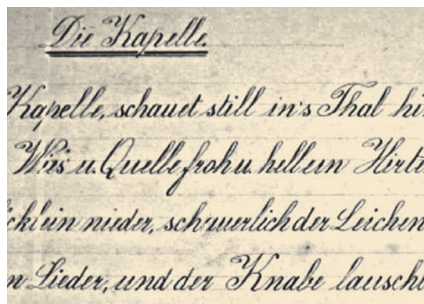 Die Kapelle.
Kapelle, schauet still in's Thal hi
Wies u. Quelle froh u. hell ein Hirte
cklein nieder, schauerlich der Leichen
n Lieder, und der Knabe lausch